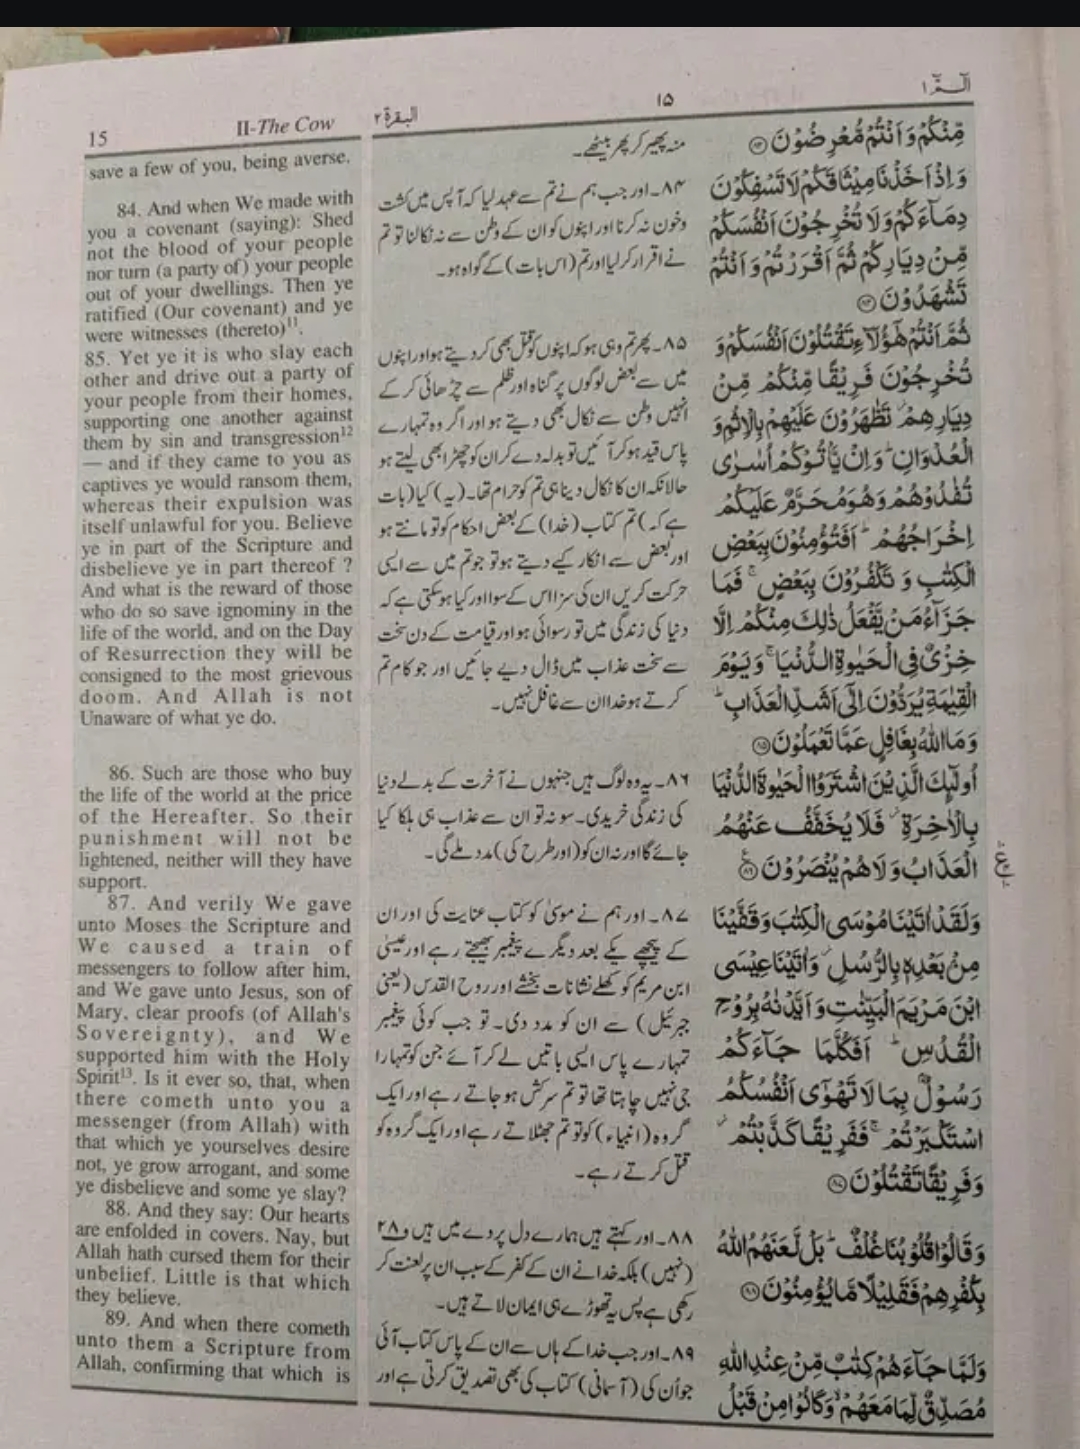 15
II-The Cow
البقرة ٢
١٥
الٓـمّٓ ١
save a few of you, being averse.
84. And when We made with
you a covenant (saying): Shed
not the blood of your people
nor turn (a party of) your people
out of your dwellings. Then ye
ratified (Our covenant) and ye
were witnesses (thereto)11.
85. Yet ye it is who slay each
other and drive out a party of
your people from their homes,
supporting one another against
them by sin and transgression12
— and if they came to you as
captives ye would ransom them,
whereas their expulsion was
itself unlawful for you. Believe
ye in part of the Scripture and
disbelieve ye in part thereof ?
And what is the reward of those
who do so save ignominy in the
life of the world, and on the Day
of Resurrection they will be
consigned to the most grievous
doom. And Allah is not
Unaware of what ye do.
86. Such are those who buy
the life of the world at the price
of the Hereafter. So their
punishment will not be
lightened, neither will they have
support.
87. And verily We gave
unto Moses the Scripture and
We caused a train of
messengers to follow after him,
and We gave unto Jesus, son of
Mary, clear proofs (of Allah's
Sovereignty), and We
supported him with the Holy
Spirit13. Is it ever so, that, when
there cometh unto you a
messenger (from Allah) with
that which ye yourselves desire
not, ye grow arrogant, and some
ye disbelieve and some ye slay?
88. And they say: Our hearts
are enfolded in covers. Nay, but
Allah hath cursed them for their
unbelief. Little is that which
they believe.
89. And when there cometh
unto them a Scripture from
Allah, confirming that which is
منہ پھیر کر پھر بیٹھے۔
۸۴۔ اور جب ہم نے تم سے عہد لیا کہ آپس میں کشت
وخون نہ کرنا اور اپنوں کو ان کے وطن سے نہ نکالنا تو تم
نے اقرار کر لیا اور تم (اس بات) کے گواہ ہو۔
۸۵۔ پھر تم وہی ہو کہ اپنوں کو قتل بھی کر دیتے ہو اور اپنوں
میں سے بعض لوگوں پر گناہ اور ظلم سے چڑھائی کر کے
انہیں وطن سے نکال بھی دیتے ہو اور اگر وہ تمہارے
پاس قید ہو کر آئیں تو بدلہ دے کر ان کو چھڑا بھی لیتے ہو
حالانکہ ان کا نکال دینا ہی تم کو حرام تھا۔ (یہ) کیا (بات
ہے کہ) تم کتاب (خدا) کے بعض احکام کو تو مانتے ہو
اور بعض سے انکار کیے دیتے ہو تو جو تم میں سے ایسی
حرکت کریں ان کی سزا اس کے سوا اور کیا ہو سکتی ہے کہ
دنیا کی زندگی میں تو رسوائی ہو اور قیامت کے دن سخت
سے سخت عذاب میں ڈال دیے جائیں اور جو کام تم
کرتے ہو خدا ان سے غافل نہیں۔
۸۶۔ یہ وہ لوگ ہیں جنہوں نے آخرت کے بدلے دنیا
کی زندگی خریدی۔ سو نہ تو ان سے عذاب ہی ہلکا کیا
جائے گا اور نہ ان کو (اور طرح کی) مدد ملے گی۔
۸۷۔ اور ہم نے موسیٰ کو کتاب عنایت کی اور ان
کے پیچھے یکے بعد دیگرے پیغمبر بھیجتے رہے اور عیسیٰ
ابن مریم کو کھلے نشانات بخشے اور روح القدس (یعنی
جبرئیل) سے ان کو مدد دی۔ تو جب کوئی پیغمبر
تمہارے پاس ایسی باتیں لے کر آئے جن کو تمہارا
جی نہیں چاہتا تھا تو تم سرکش ہو جاتے رہے اور ایک
گروہ (انبیاء) کو تو تم جھٹلاتے رہے اور ایک گروہ کو
قتل کرتے رہے۔
۸۸۔ اور کہتے ہیں ہمارے دل پردے میں ہیں و۲۸
(نہیں) بلکہ خدا نے ان کے کفر کے سبب ان پر لعنت کر
رکھی ہے پس یہ تھوڑے ہی ایمان لاتے ہیں۔
۸۹۔ اور جب خدا کے ہاں سے ان کے پاس کتاب آئی
جو ان کی (آسمانی) کتاب کی بھی تصدیق کرتی ہے اور
مِّنْكُمْ وَاَنْتُمْ مُّعْرِضُوْنَ ۝۸۳
وَاِذْ اَخَذْنَا مِيْثَاقَكُمْ لَا تَسْفِكُوْنَ
دِمَآءَكُمْ وَلَا تُخْرِجُوْنَ اَنْفُسَكُمْ
مِّنْ دِيَارِكُمْ ثُمَّ اَقْرَرْتُمْ وَاَنْتُمْ
تَشْهَدُوْنَ ۝۸۴
ثُمَّ اَنْتُمْ هٰٓؤُلَآءِ تَقْتُلُوْنَ اَنْفُسَكُمْ وَ
تُخْرِجُوْنَ فَرِيْقًا مِّنْكُمْ مِّنْ
دِيَارِهِمْ تَظٰهَرُوْنَ عَلَيْهِمْ بِالْاِثْمِ وَ
الْعُدْوَانِ ؕ وَاِنْ يَّاْتُوْكُمْ اُسٰرٰى
تُفٰدُوْهُمْ وَهُوَ مُحَرَّمٌ عَلَيْكُمْ
اِخْرَاجُهُمْ ؕ اَفَتُؤْمِنُوْنَ بِبَعْضِ
الْكِتٰبِ وَ تَكْفُرُوْنَ بِبَعْضٍ ۚ فَمَا
جَزَآءُ مَنْ يَّفْعَلُ ذٰلِكَ مِنْكُمْ اِلَّا
خِزْىٌ فِى الْحَيٰوةِ الدُّنْيَا ۚ وَيَوْمَ
الْقِيٰمَةِ يُرَدُّوْنَ اِلٰٓى اَشَدِّ الْعَذَابِ ؕ
وَمَا اللّٰهُ بِغَافِلٍ عَمَّا تَعْمَلُوْنَ ۝۸۵
اُولٰٓئِكَ الَّذِيْنَ اشْتَرَوُا الْحَيٰوةَ الدُّنْيَا
بِالْاٰخِرَةِ ۫ فَلَا يُخَفَّفُ عَنْهُمُ
الْعَذَابُ وَلَا هُمْ يُنْصَرُوْنَ ۝۸۶
ع
وَلَقَدْ اٰتَيْنَا مُوْسَى الْكِتٰبَ وَقَفَّيْنَا
مِنْۢ بَعْدِهٖ بِالرُّسُلِ ؗ وَاٰتَيْنَا عِيْسَى
ابْنَ مَرْيَمَ الْبَيِّنٰتِ وَاَيَّدْنٰهُ بِرُوْحِ
الْقُدُسِ ؕ اَفَكُلَّمَا جَآءَكُمْ
رَسُوْلٌۢ بِمَا لَا تَهْوٰٓى اَنْفُسُكُمُ
اسْتَكْبَرْتُمْ ۚ فَفَرِيْقًا كَذَّبْتُمْ ؗ
وَفَرِيْقًا تَقْتُلُوْنَ ۝۸۷
وَقَالُوْا قُلُوْبُنَا غُلْفٌ ؕ بَلْ لَّعَنَهُمُ اللّٰهُ
بِكُفْرِهِمْ فَقَلِيْلًا مَّا يُؤْمِنُوْنَ ۝۸۸
وَلَمَّا جَآءَهُمْ كِتٰبٌ مِّنْ عِنْدِ اللّٰهِ
مُصَدِّقٌ لِّمَا مَعَهُمْ ۙ وَكَانُوْا مِنْ قَبْلُ